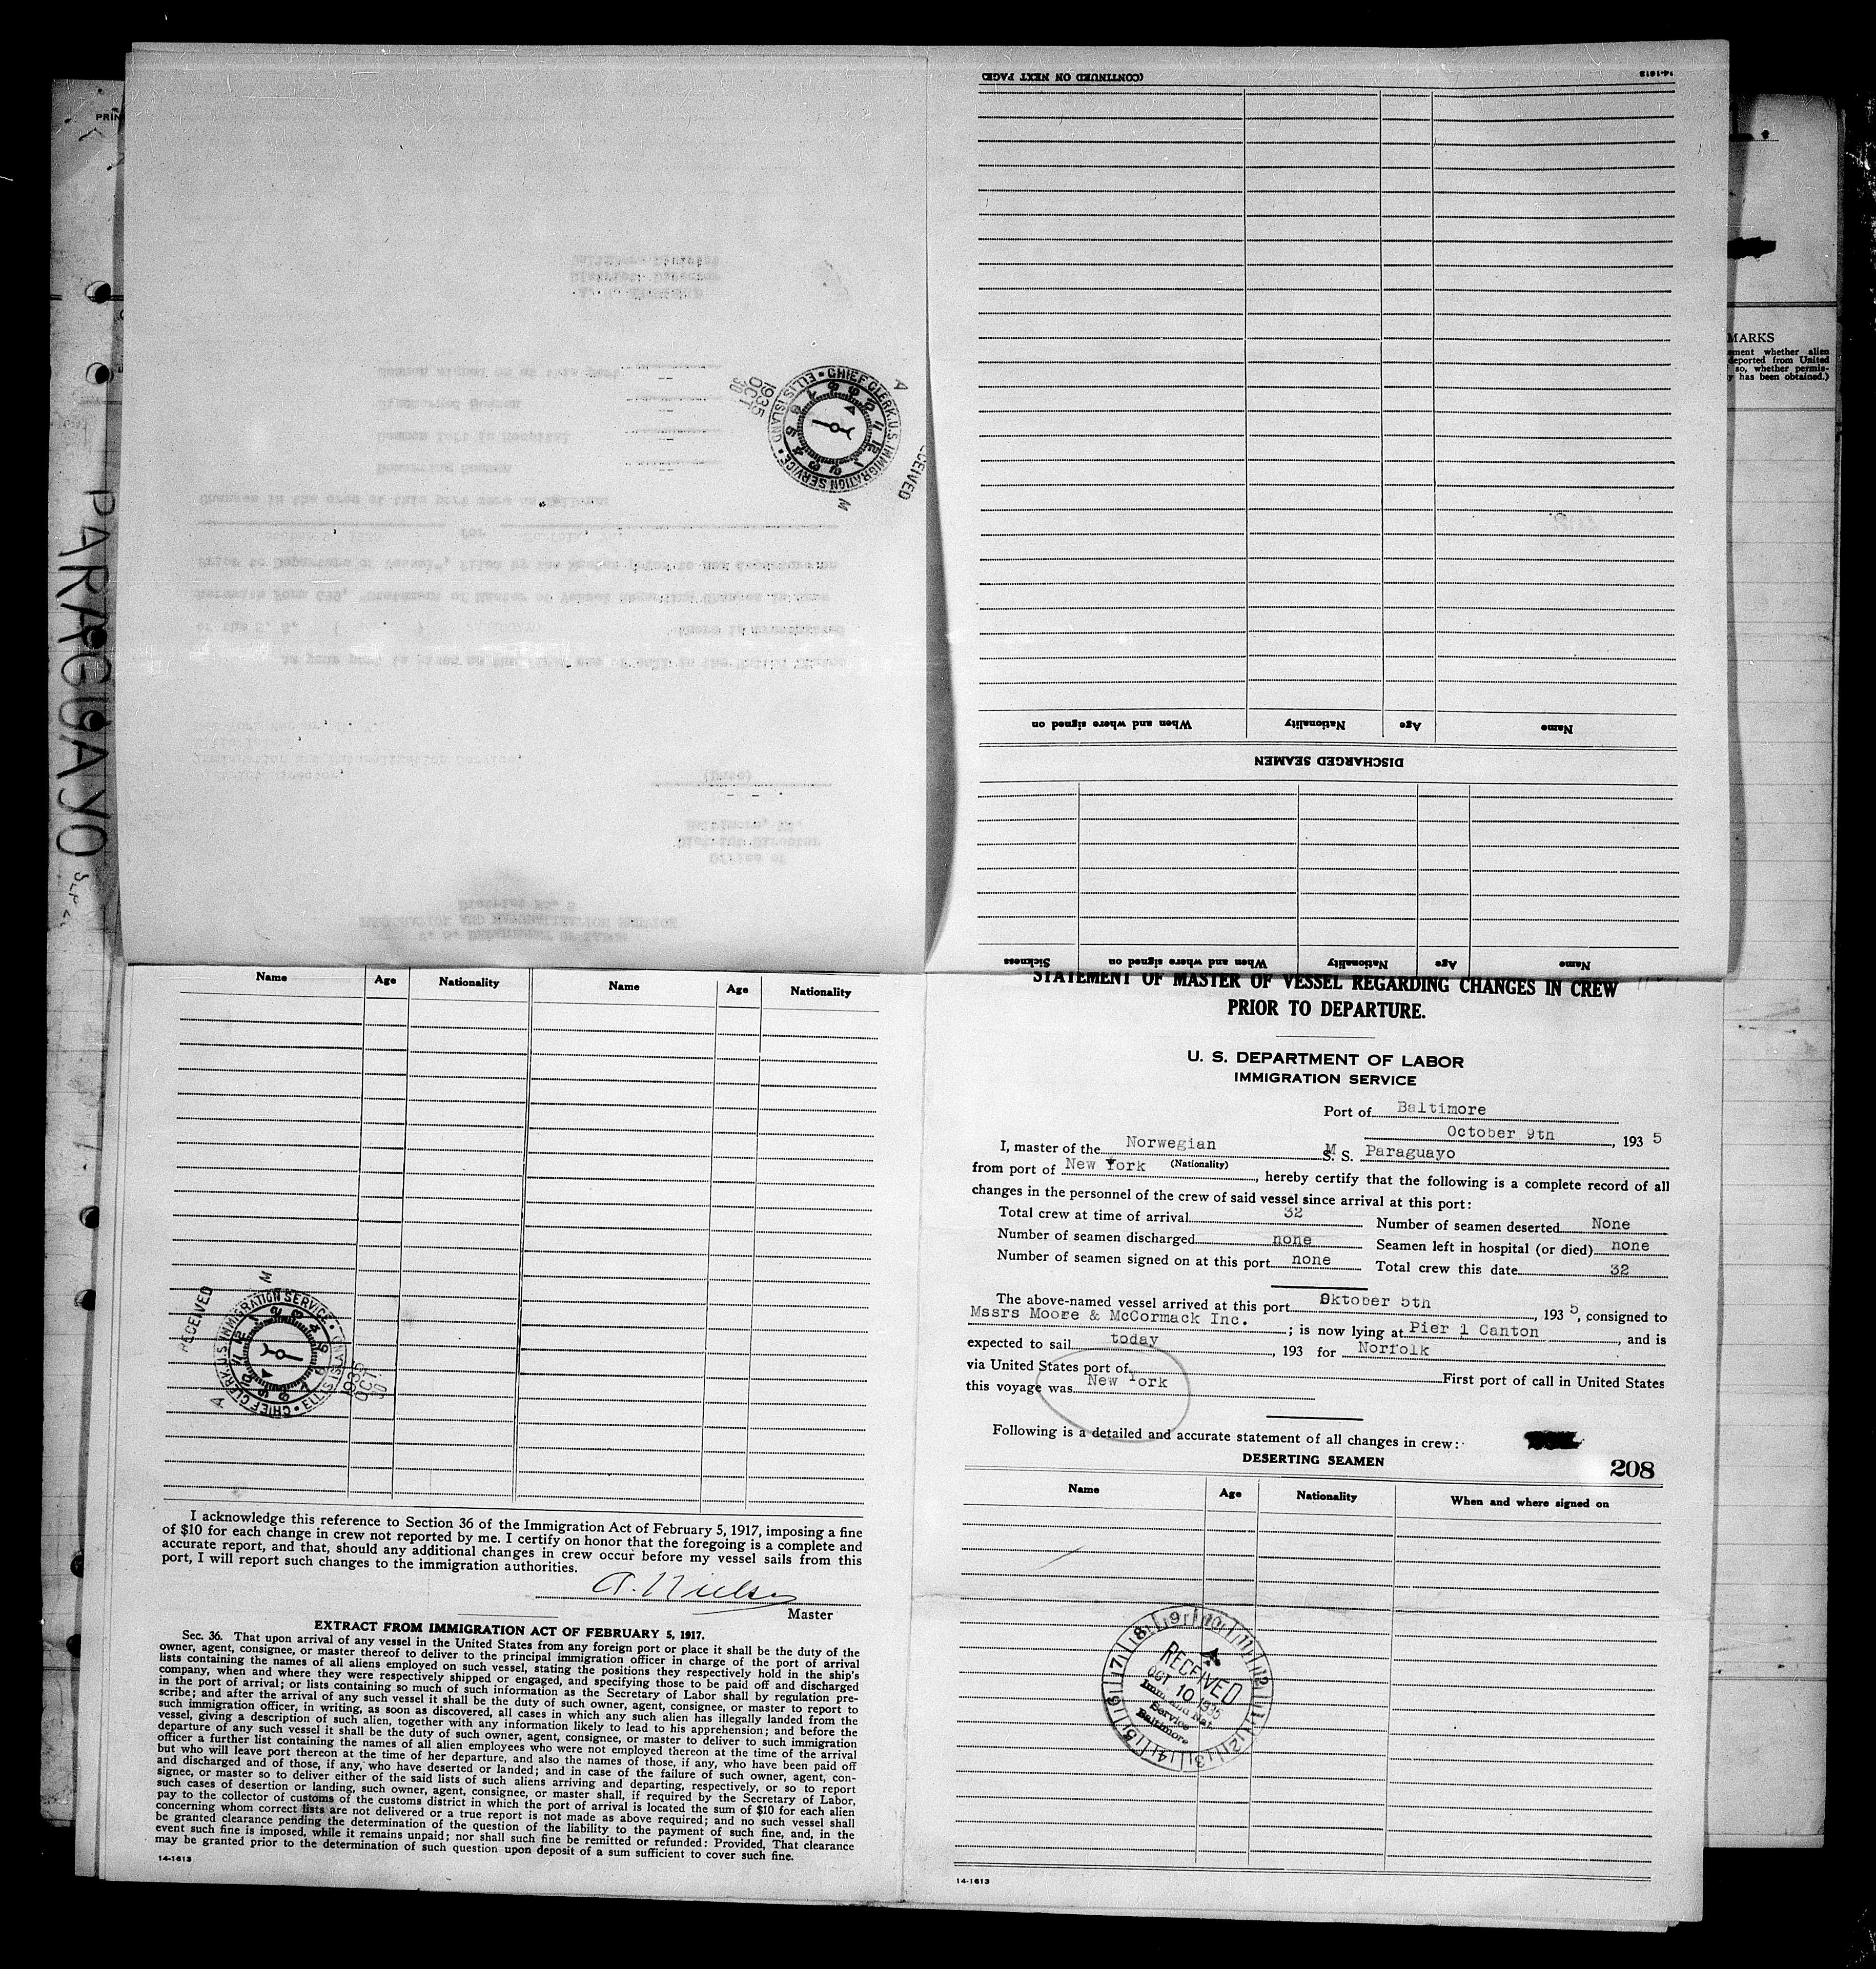 PARAGUAYO
MARKS
ement whether alien
deported from United
so, whether permis-
y has been obtained.)
(CONTINUED ON NEXT PAGE)
14-1613
When and where signed on
Nationality
Age
Name
DISCHARGED SEAMEN
Sickness
When and where signed on
Nationality
Age
Name
CHIEF CLERK, U.S. IMMIGRATION SERVICE • ELLIS ISLAND •
1935
OCT
30
A
M
Name Age Nationality Name Age Nationality
RECEIVED
CHIEF CLERK, U.S. IMMIGRATION SERVICE • ELLIS ISLAND •
1935
OCT
30
A
M
I acknowledge this reference to Section 36 of the Immigration Act of February 5, 1917, imposing a fine
of $10 for each change in crew not reported by me. I certify on honor that the foregoing is a complete and
accurate report, and that, should any additional changes in crew occur before my vessel sails from this
port, I will report such changes to the immigration authorities.
Master
EXTRACT FROM IMMIGRATION ACT OF FEBRUARY 5, 1917.
Sec. 36. That upon arrival of any vessel in the United States from any foreign port or place it shall be the duty of the
owner, agent, consignee, or master thereof to deliver to the principal immigration officer in charge of the port of arrival
lists containing the names of all aliens employed on such vessel, stating the positions they respectively hold in the ship's
company, when and where they were respectively shipped or engaged, and specifying those to be paid off and discharged
in the port of arrival; or lists containing so much of such information as the Secretary of Labor shall by regulation pre-
scribe; and after the arrival of any such vessel it shall be the duty of such owner, agent, consignee, or master to report to
such immigration officer, in writing, as soon as discovered, all cases in which any such alien has illegally landed from the
vessel, giving a description of such alien, together with any information likely to lead to his apprehension; and before the
departure of any such vessel it shall be the duty of such owner, agent, consignee, or master to deliver to such immigration
officer a further list containing the names of all alien employees who were not employed thereon at the time of the arrival
but who will leave port thereon at the time of her departure, and also the names of those, if any, who have been paid off
and discharged and of those, if any, who have deserted or landed; and in case of the failure of such owner, agent, con-
signee, or master so to deliver either of the said lists of such aliens arriving and departing, respectively, or so to report
such cases of desertion or landing, such owner, agent, consignee, or master shall, if required by the Secretary of Labor,
pay to the collector of customs of the customs district in which the port of arrival is located the sum of $10 for each alien
concerning whom correct lists are not delivered or a true report is not made as above required; and no such vessel shall
be granted clearance pending the determination of the question of the liability to the payment of such fine, and, in the
event such fine is imposed, while it remains unpaid; nor shall such fine be remitted or refunded: Provided, That clearance
may be granted prior to the determination of such question upon deposit of a sum sufficient to cover such fine.
14-1613
STATEMENT OF MASTER OF VESSEL REGARDING CHANGES IN CREW
PRIOR TO DEPARTURE.
U. S. DEPARTMENT OF LABOR
IMMIGRATION SERVICE
Port of Baltimore
October 9th, 1935
I, master of the Norwegian M S. S. Paraguayo
(Nationality)
from port of New York, hereby certify that the following is a complete record of all
changes in the personnel of the crew of said vessel since arrival at this port:
Total crew at time of arrival 32 Number of seamen deserted None
Number of seamen discharged none Seamen left in hospital (or died) none
Number of seamen signed on at this port none Total crew this date 32
The above-named vessel arrived at this port Oktober 5th, 1935, consigned to
Mssrs Moore & McCormack Inc.; is now lying at Pier 1 Canton, and is
expected to sail today, 193 for Norfolk
via United States port of First port of call in United States
this voyage was New York
Following is a detailed and accurate statement of all changes in crew:
DESERTING SEAMEN
208
Name Age Nationality When and where signed on
RECEIVED
OCT 10 1935
Imm. and Nat.
Service
Baltimore
14-1613